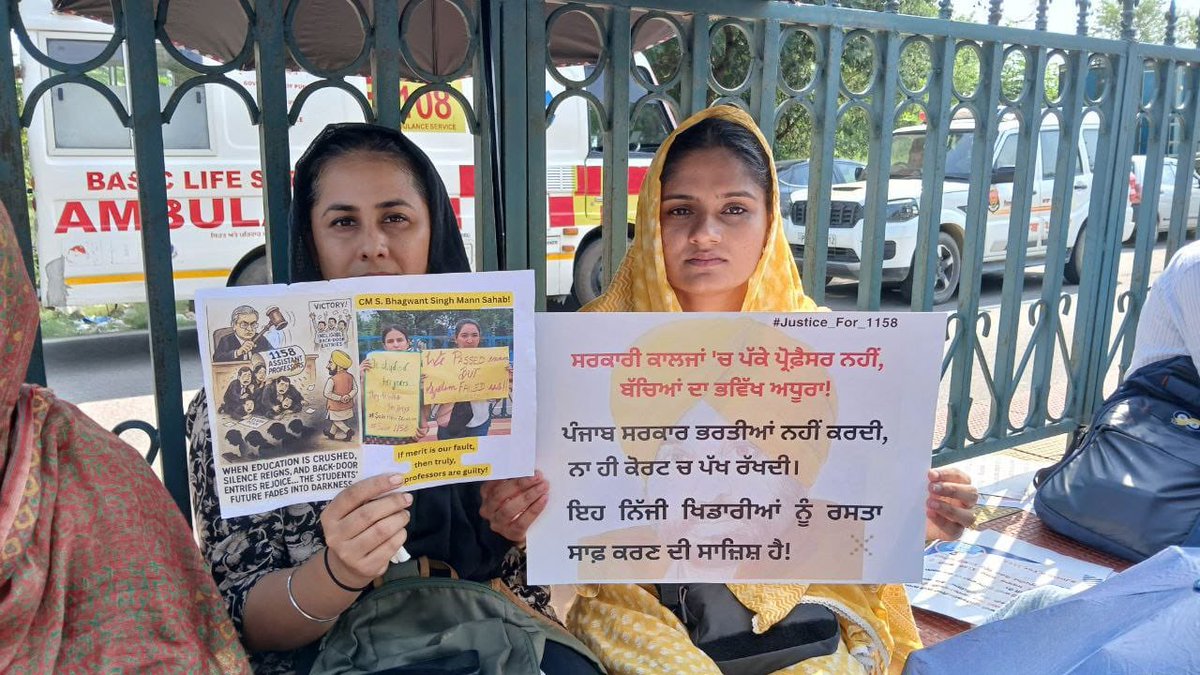 108
BULANCE SERVICE
BASIC LIFE
AMBUL
CM S. Bhagwant Singh Mann Sahab!
VICTORY!
BACK-DOOR
ENTRIES
1158
ASSISTANT
PROFESSORS
We PASSED exam
BUT
System FAILED us!
If merit is our fault,
then truly,
professors are guilty!
WHEN EDUCATION IS CRUSHED,
SILENCE REIGNS, AND BACK-DOOR
ENTRIES REJOICE... THE STUDENTS'
FUTURE FADES INTO DARKNESS
#Justice_For_1158
ਸਰਕਾਰੀ ਕਾਲਜਾਂ 'ਚ ਪੱਕੇ ਪ੍ਰੋਫ਼ੈਸਰ ਨਹੀਂ,
ਬੱਚਿਆਂ ਦਾ ਭਵਿੱਖ ਅਧੂਰਾ!
ਪੰਜਾਬ ਸਰਕਾਰ ਭਰਤੀਆਂ ਨਹੀਂ ਕਰਦੀ,
ਨਾ ਹੀ ਕੋਰਟ ਚ ਪੱਖ ਰੱਖਦੀ।
ਇਹ ਨਿੱਜੀ ਖਿਡਾਰੀਆਂ ਨੂੰ ਰਸਤਾ
ਸਾਫ਼ ਕਰਣ ਦੀ ਸਾਜ਼ਿਸ਼ ਹੈ!